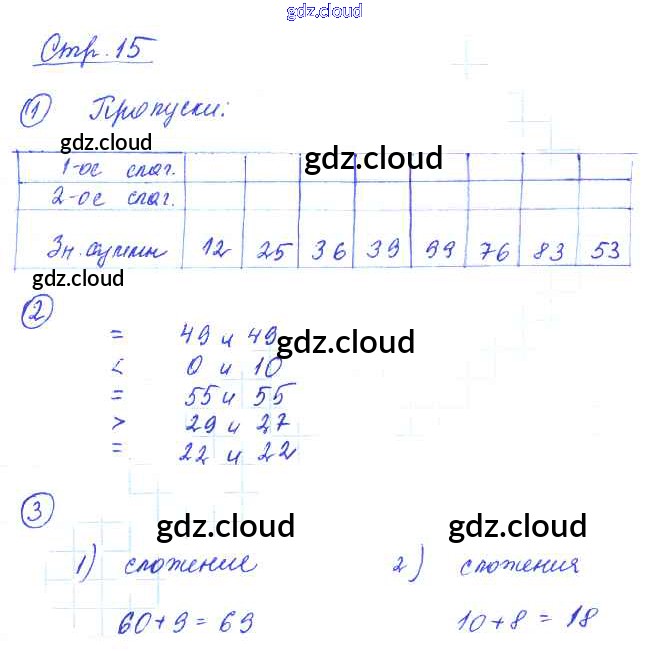 gdz.cloud
Стр. 15
1 Пропуски:
gdz.cloud
gdz.cloud
1-ое слаг.
2-ое слаг.
Зн. суммы 12 25 36 39 99 76 83 53
gdz.cloud
2
= 49 и 49
gdz.cloud
< 0 и 10
= 55 и 55
> 29 и 27
= 22 и 22
3
gdz.cloud gdz.cloud
1) сложение 2) сложения
60+9=69 10+8=18